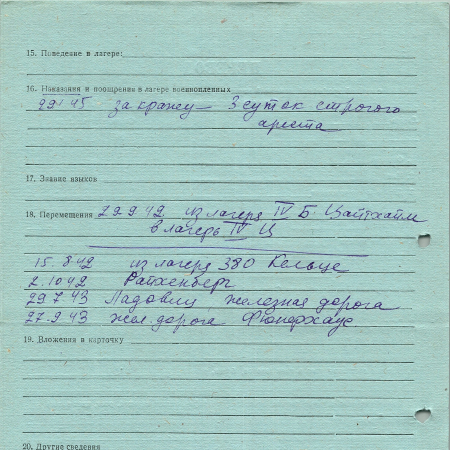 15. Поведение в лагере:
16. Наказания и поощрения в лагере военнопленных
за кражу — 3 суток строгого
ареста
17. Знание языков
18. Перемещения 29 9 42 из лагеря IV Б Цайтхайм
в лагерь IV Ц
15 8 42 из лагеря 380 Кельце
2.10 42 Ратхенберг
29 7 43 железная дорога
27.9 43 жел дорога Фюнфхаус
19. Вложения в карточку
20. Другие сведения